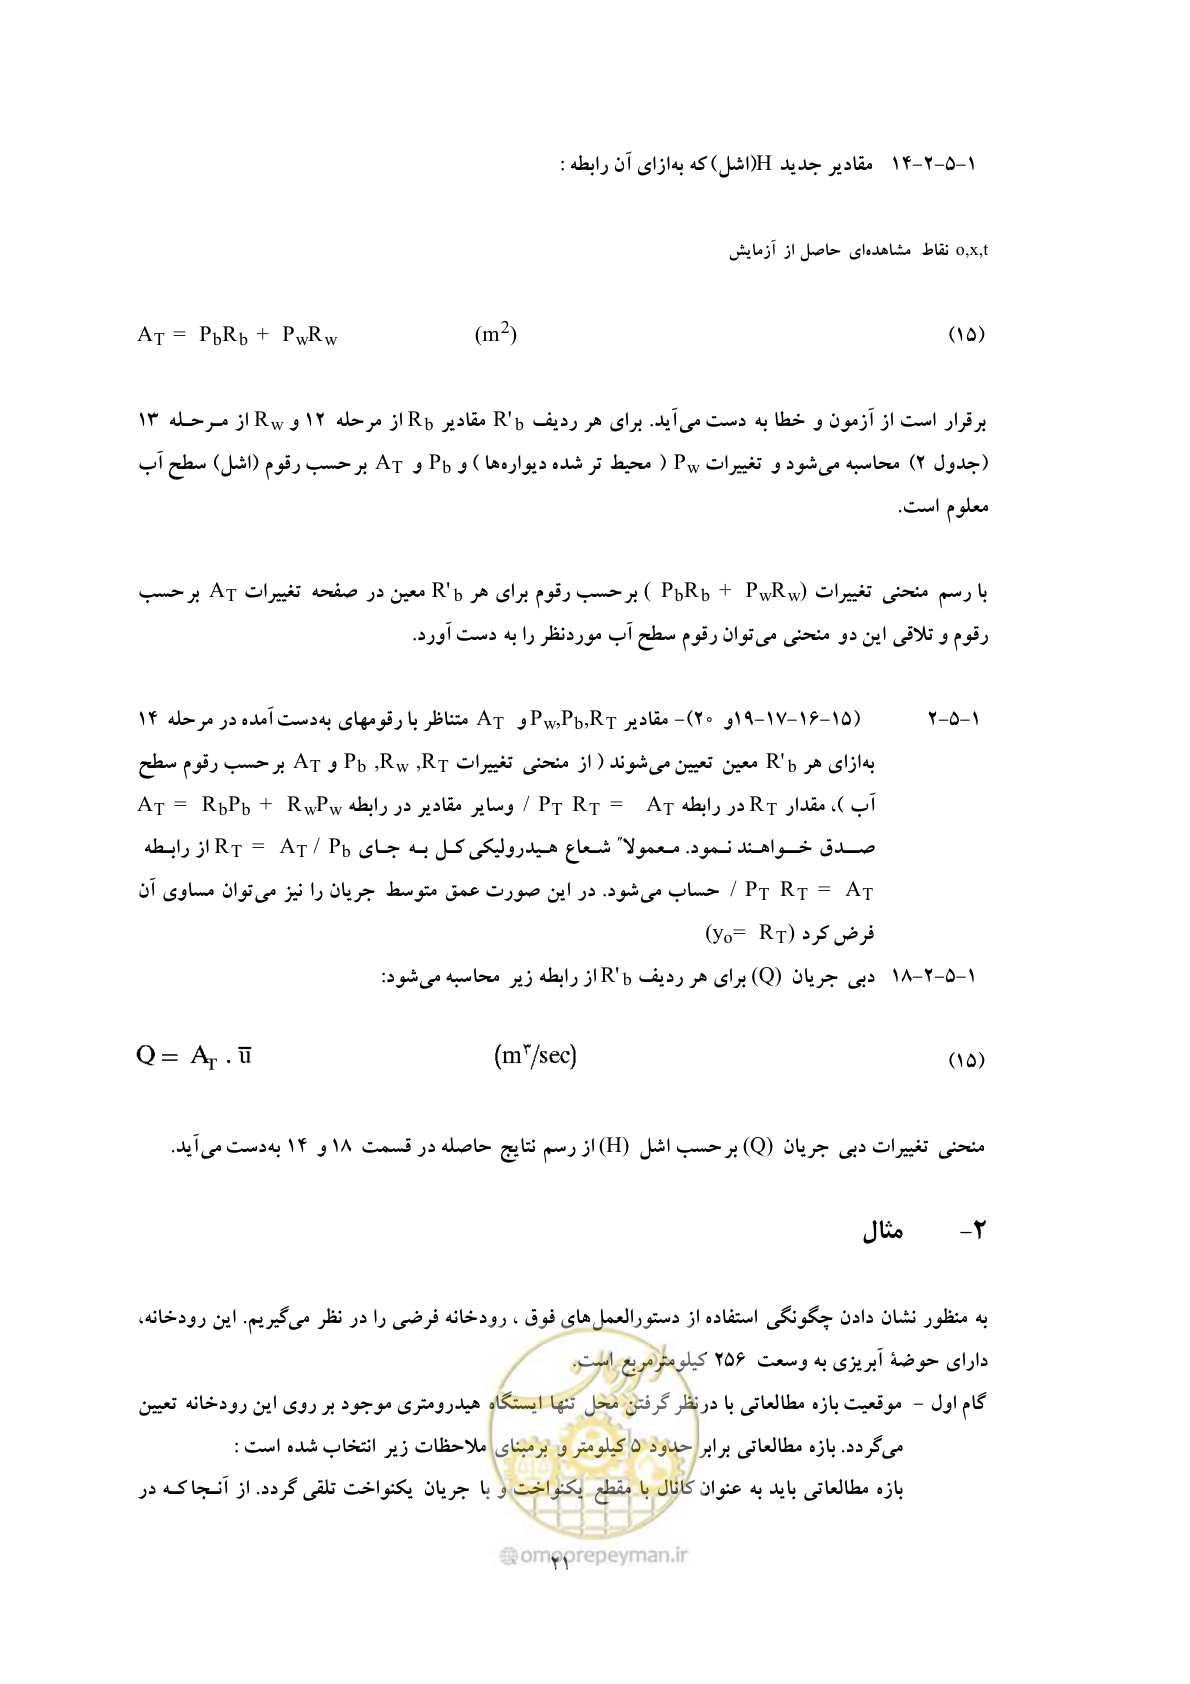 ۱-۵-۲-۱۴ مقادیر جدید H(اشل) که به‌ازای آن رابطه :
o,x,t نقاط مشاهده‌ای حاصل از آزمایش
A_T = P_bR_b + P_wR_w (m²) (۱۵)
برقرار است از آزمون و خطا به دست می‌آید. برای هر ردیف R'_b مقادیر R_b از مرحله ۱۲ و R_w از مـرحـله ۱۳
(جدول ۲) محاسبه می‌شود و تغییرات P_w ( محیط تر شده دیواره‌ها ) و P_b و A_T بر حسب رقوم (اشل) سطح آب
معلوم است.
با رسم منحنی تغییرات (P_bR_b + P_wR_w ) بر حسب رقوم برای هر R'_b معین در صفحه تغییرات A_T بر حسب
رقوم و تلاقی این دو منحنی می‌توان رقوم سطح آب موردنظر را به دست آورد.
۱-۵-۲ (۱۵-۱۶-۱۷-۱۹و ۲۰)- مقادیر P_w,P_b,R_T و A_T متناظر با رقومهای به‌دست آمده در مرحله ۱۴
به‌ازای هر R'_b معین تعیین می‌شوند ( از منحنی تغییرات P_b ,R_w ,R_T و A_T بر حسب رقوم سطح
آب )، مقدار R_T در رابطه / P_T R_T = A_T وسایر مقادیر در رابطه A_T = R_bP_b + R_wP_w
صـــدق خـــواهـند نـمود. مـعمولا" شـعاع هـیدرولیکی کـل بـه جـای R_T = A_T / P_b از رابـطه
/ P_T R_T = A_T حساب می‌شود. در این صورت عمق متوسط جریان را نیز می‌توان مساوی آن
فرض کرد (y_o= R_T)
۱-۵-۲-۱۸ دبی جریان (Q) برای هر ردیف R'_b از رابطه زیر محاسبه می‌شود:
Q = A_T . u̅ (m۳/sec) (۱۵)
منحنی تغییرات دبی جریان (Q) بر حسب اشل (H) از رسم نتایج حاصله در قسمت ۱۸ و ۱۴ به‌دست می‌آید.
۲- مثال
به منظور نشان دادن چگونگی استفاده از دستورالعمل‌های فوق ، رودخانه فرضی را در نظر می‌گیریم. این رودخانه،
دارای حوضهٔ آبریزی به وسعت ۲۵۶ کیلومترمربع است.
گام اول - موقعیت بازه مطالعاتی با درنظر گرفتن محل تنها ایستگاه هیدرومتری موجود بر روی این رودخانه تعیین
می‌گردد. بازه مطالعاتی برابر حدود ۵ کیلومتر و برمبنای ملاحظات زیر انتخاب شده است :
بازه مطالعاتی باید به عنوان کانال با مقطع یکنواخت و با جریان یکنواخت تلقی گردد. از آنـجا کـه در
@omoorepeyman.ir
۲۱